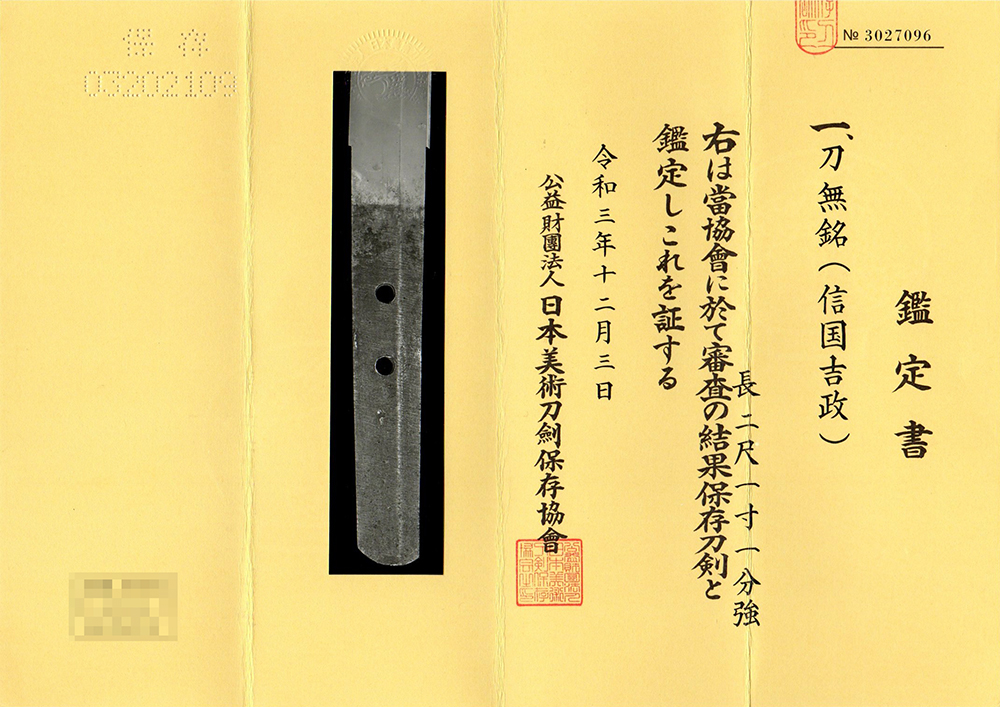 № 3027096
鑑定書
一、刀 無銘(信国吉政)
長 二尺一寸一分強
右は當協會に於て審査の結果保存刀剣と
鑑定しこれを証する
令和三年十二月三日
公益財團法人 日本美術刀劍保存協會
保存
03202109